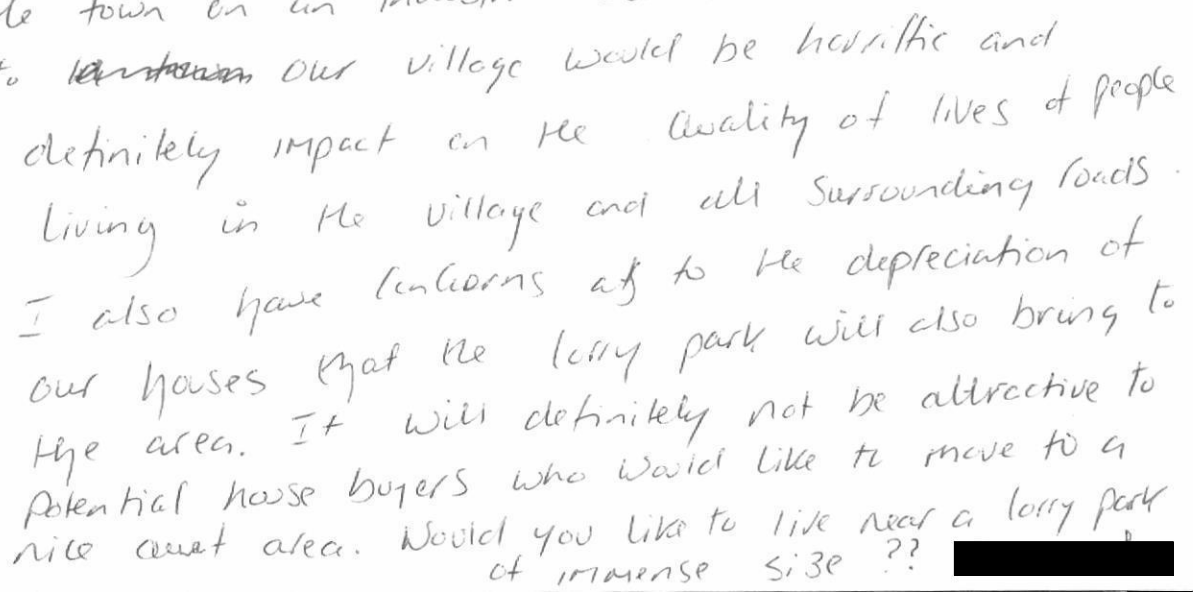 town on an
to our village would be horriffic and
definitely impact on the Quality of lives of people
living in the village and all surrounding roads.
I also have concerns as to the depreciation of
our houses that the lorry park will also bring to
the area. It will definitely not be attractive to
potential house buyers who would like to move to a
nice quiet area. Would you like to live near a lorry park
of immense size ??